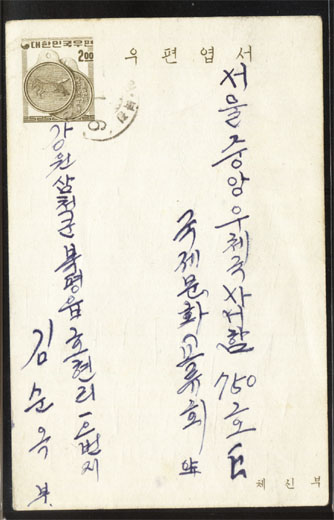 대한민국우편
2.00
우편엽서
서울중앙우체국사서함 750호
국제문화교류회
강원삼척군북평읍
김순옥
체신부